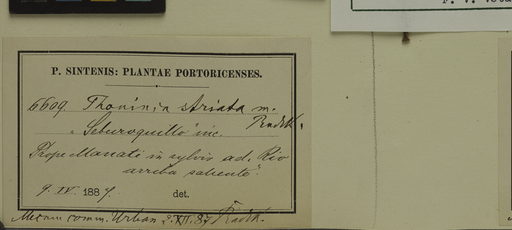 P. SINTENIS: PLANTAE PORTORICENSES.
6609. Thouinia striata m.
Radlk.
"Seburoquillo" inc.
Prope Manati in sylvis ad "Rio
arriba saliente".
9. IV. 1887. det.
Mecum comm. Urban 2. XII. 87 Radlk.